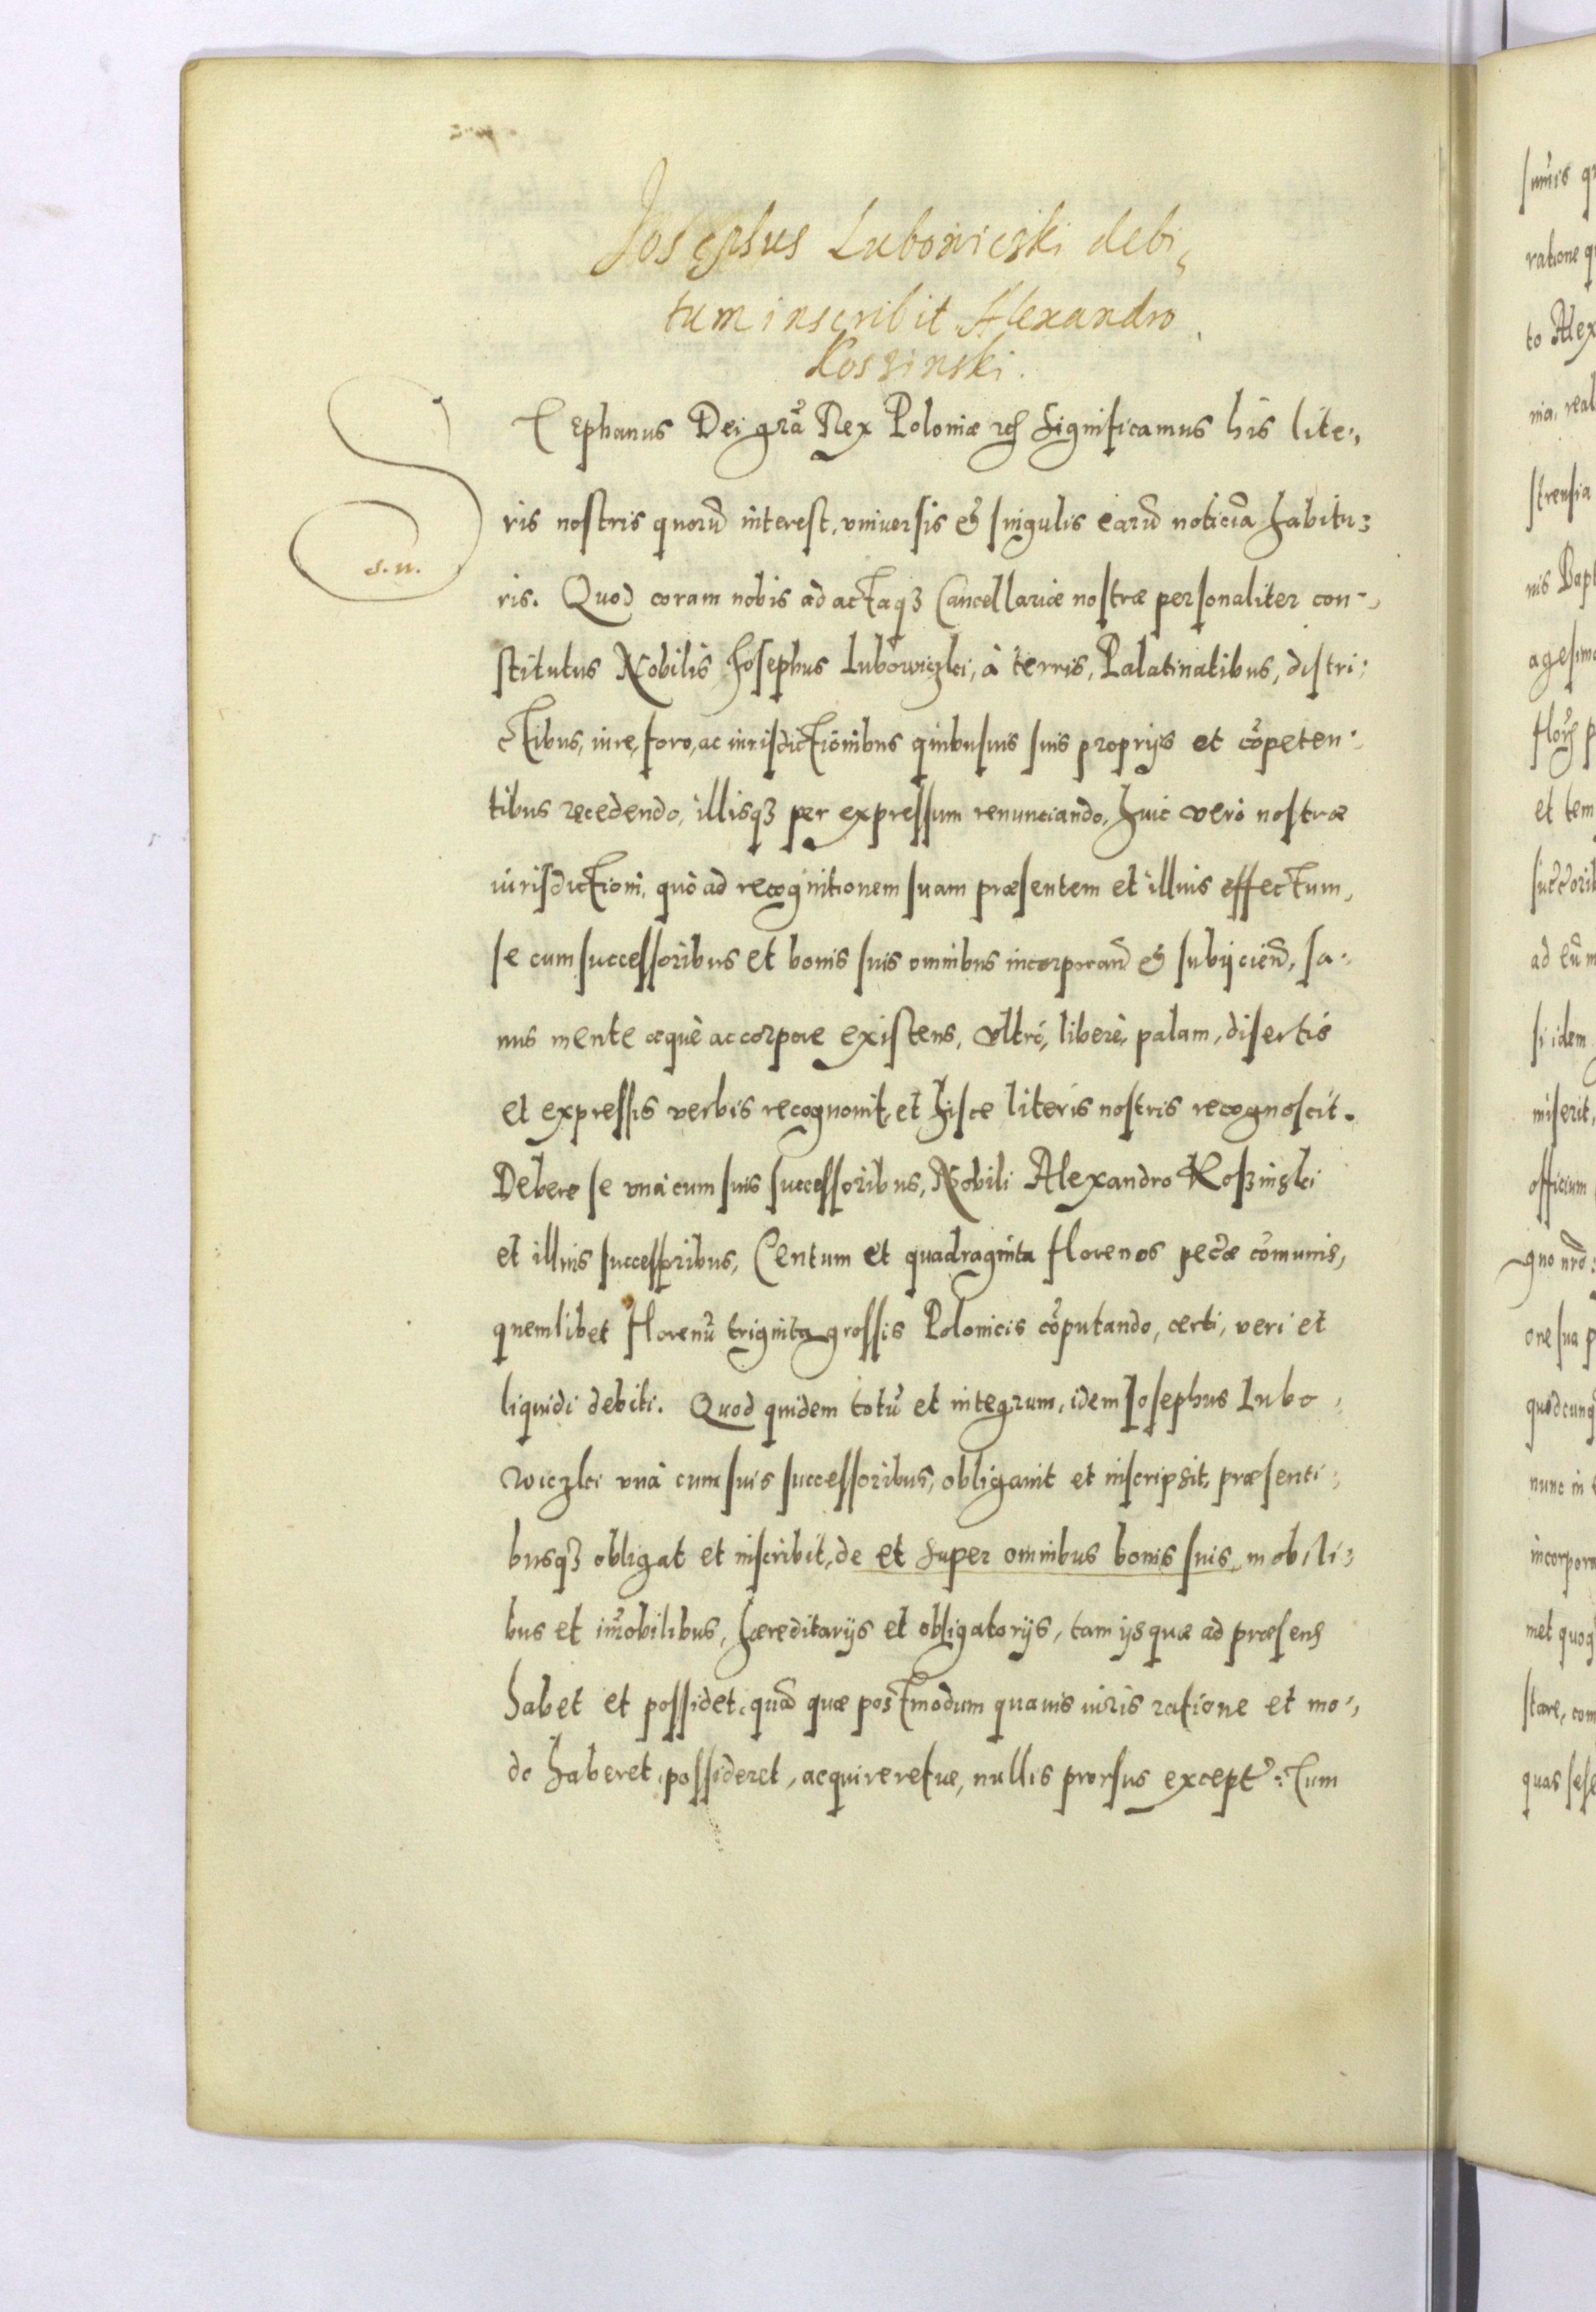 Josephus Lubowicski debi,
tum inscribit Alexandro
Koszinski.
STephanus Dei gra͂ Rex Poloniæ etc Significamus his lite,
ris nostris quorũ interest, vniuersis & singulis earũ noticiã habitu:
s. n.
ris. Quod coram nobis ad actaqꝫ Cancellariæ nostræ personaliter con-,
stitutus Nobilis Josephus Lubowiczki, à terris, Palatinatibus, distri:
ctibus, iure, foro, ac iurisdictionibus quibusuis suis proprijs et cõpeten:
tibus recedendo, illisqꝫ per expressum renunciando, huic verò nostræ
iurisdictioni, quò ad recognitionem suam præsentem et illius effectum,
se cum successoribus et bonis suis omnibus incorporand̃ & subijciend̃, sa:
nus mente æquè ac corpore existens, vltrò, liberè, palam, disertis
et expressis verbis recognouit, et hisce literis nostris recognoscit.
Debere se vnà cum suis successoribus, Nobili Alexandro Koszinski
et illius successoribus, Centum et quadraginta florenos pecc̃æ cõmunis,
quemlibet florenũ triginta grossis Polonicis cõputando, certi, veri et
liquidi debiti. Quod quidem totũ et integrum, idem Josephus Lubo,
wiczki vnà cum suis successoribus, obligauit et inscripsit, præsenti:
busqꝫ obligat et inscribit, de et super omnibus bonis suis, mobili:
bus et im̃obilibus, hæreditarijs et obligatorijs, tam ijs quæ ad præsens
habet et possidet, quã quæ postmodum quauis iuris ratione et mo:,
do haberet, possideret, acquireretue, nullis prorsus except̃: Tum